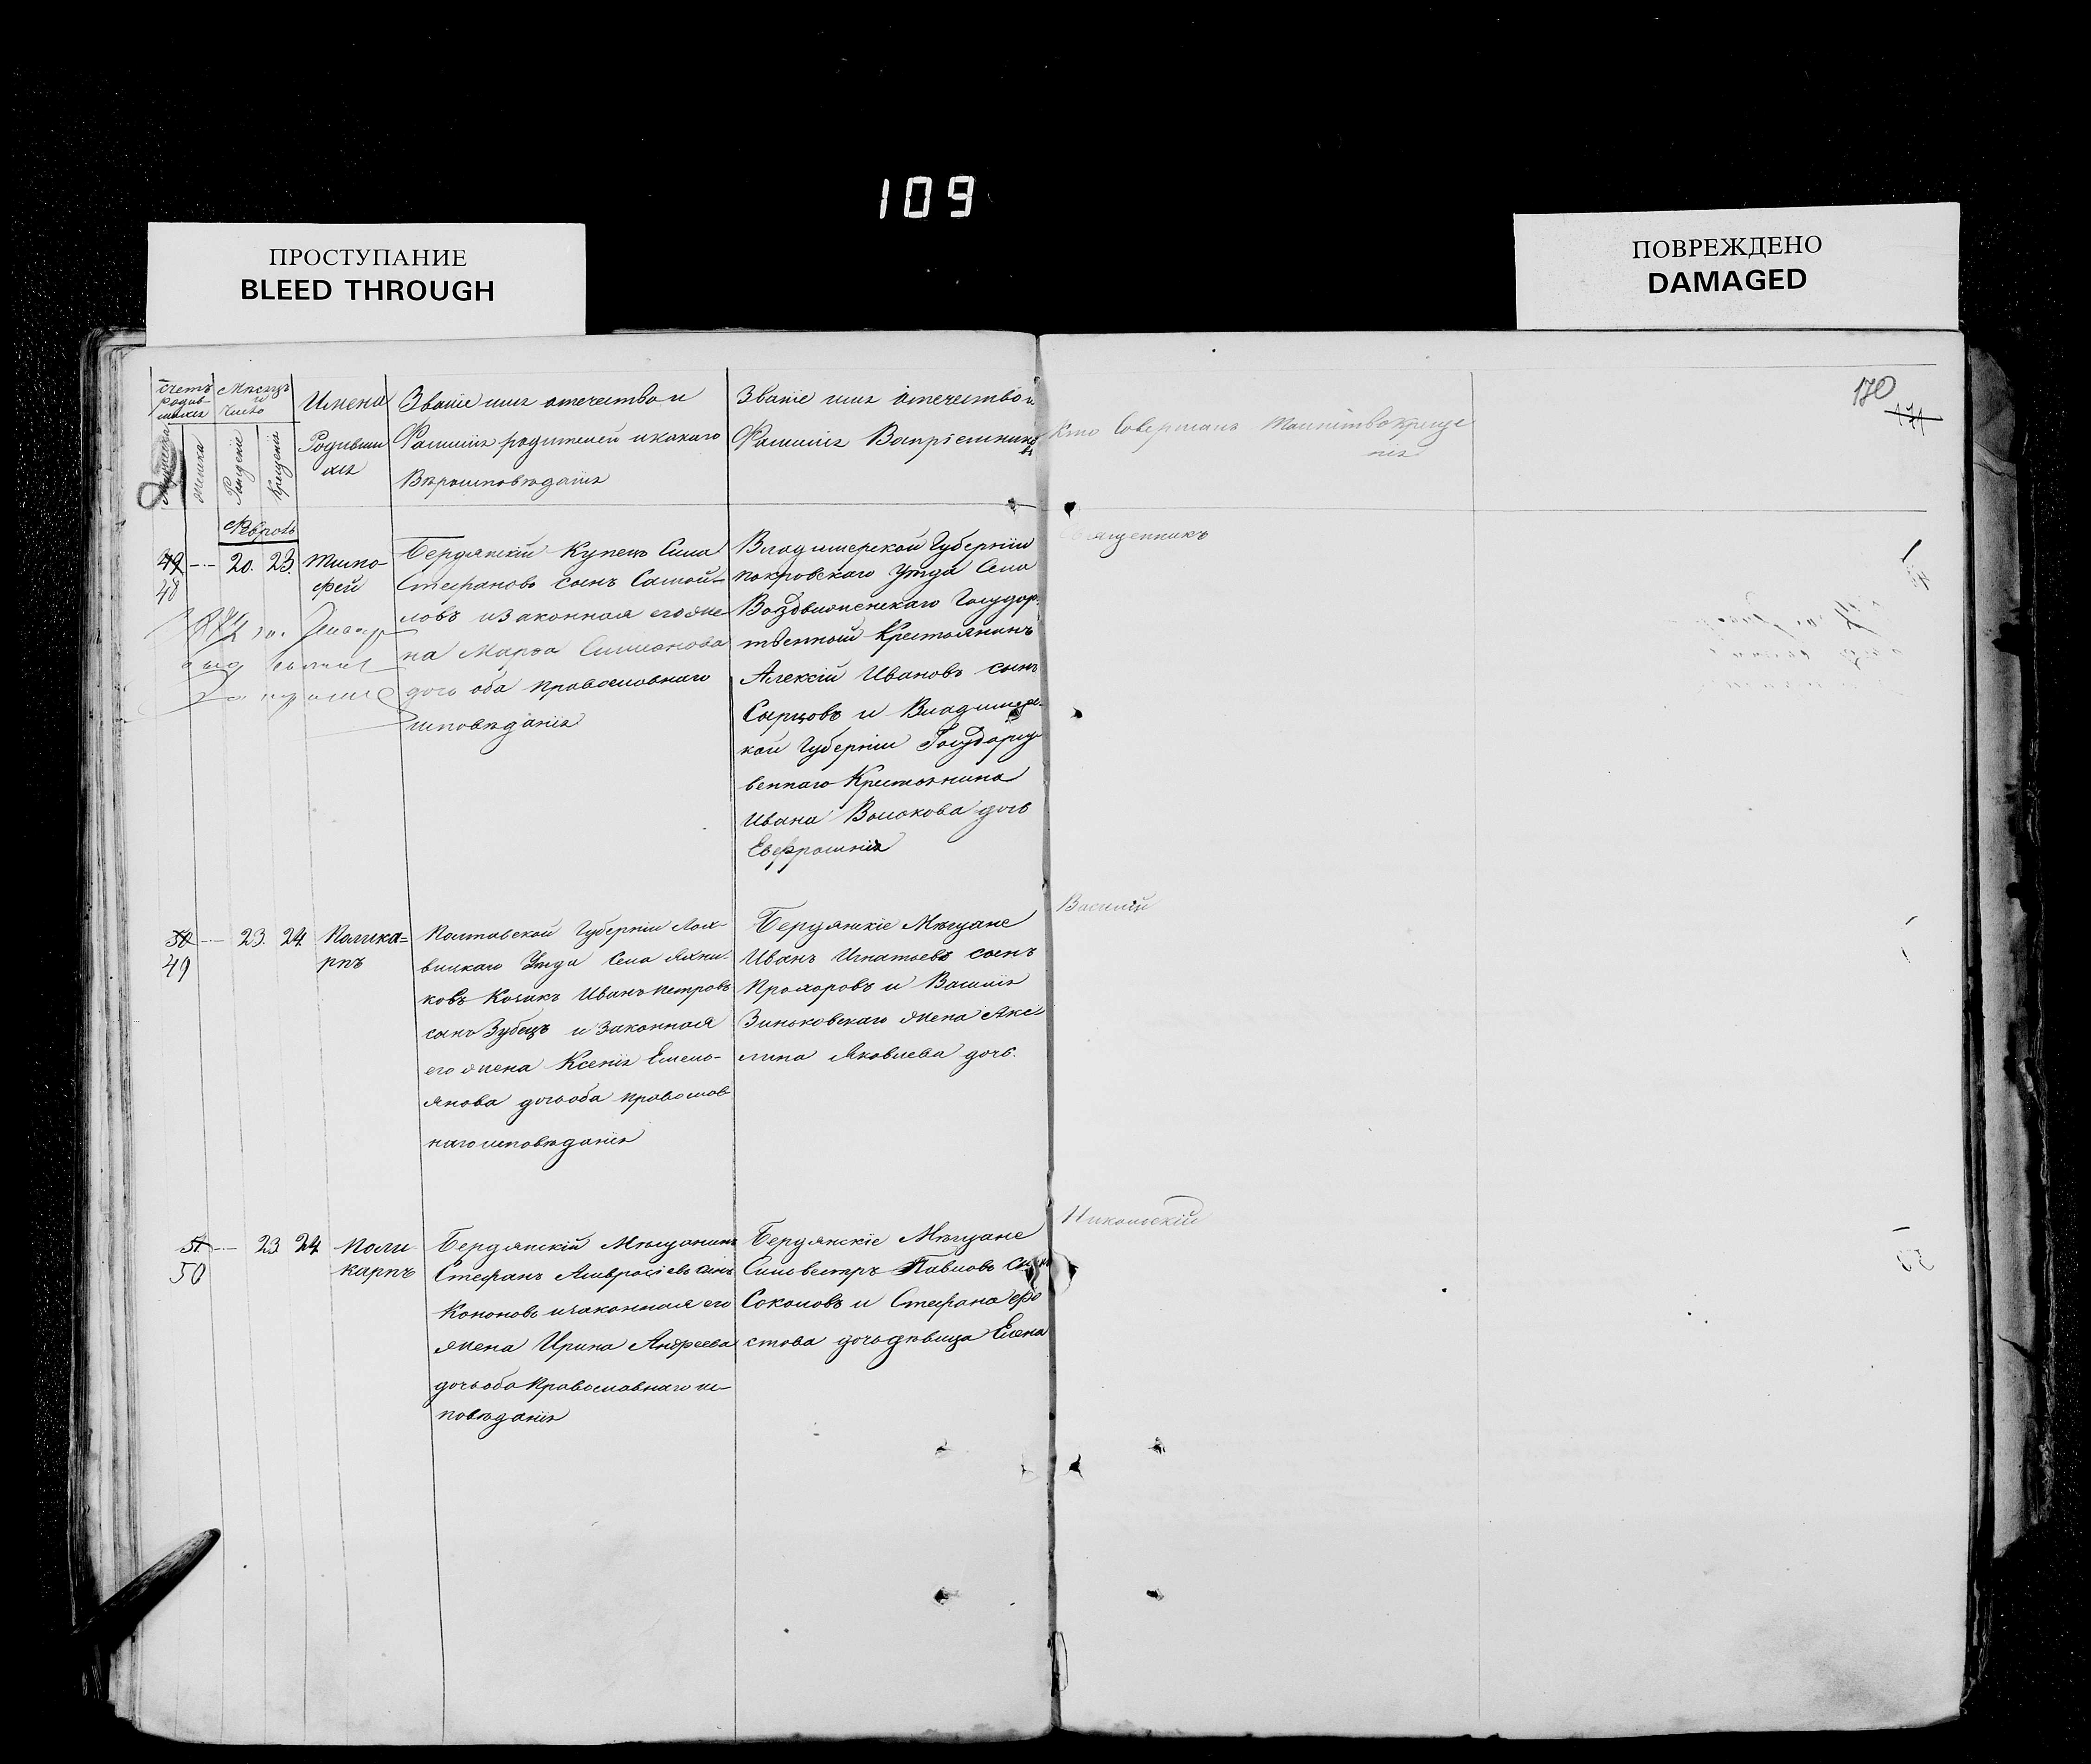 109
ПРОСТУПАНИЕ
BLEED THROUGH
ПОВРЕЖДЕНО
DAMAGED
170
171
Счетъ родив-шихся
Мѣсяцъ и Число
Имена
Родивши
хся
Званіе имя отечество и
Фамилія родителей и какаго
Вѣроисповѣданія
Званіе имя отечество и
Фамилія Вапріемниковъ
Кто Совершалъ Таинство Креще
нія
Мужеска
Женска
Рожденія
Крещенія
Февраль
49 48 20. 23. Тимо-
фей
Бердянскій Купецъ Сила
Стефановъ сынъ Самой-
ловъ и законная его же
на Марѳа Симионова
дочь оба православнаго
исповѣданія
Владимерской Губерніи
покровскаго уѣзда Села
Воздвиженскаго Государ
твенной Крестьянинъ
Алексій Ивановъ сынъ
Сырцовъ и Владимерс-
кой Губерніи Государст
веннаго Крестьянина
Ивана Волокова дочь
Евфросинія
Священникъ
50 49 23. 24 Полика=
рпъ
Полтавской Губерніи Лох-
вицкаго Уѣзда Села Яхни-
ковъ Козакъ Иванъ петровъ
сынъ Зубецъ и Законная
его жена Ксенія Емель-
янова дочь оба православ
наго исповѣданія
Бердянскіе Мѣщане
Иванъ Игнатьевъ сынъ
Прохоровъ и Василія
Зиньковскаго жена Аку
лина Яковлева дочь.
Василій
51 50 23 24 Поли
карпъ
Бердянскій Мѣщанинъ
Стефанъ Амвросіевъ сынъ
Кононовъ и законная его
жена Ирина Андреева
дочь оба Православнаго ис-
повѣданія
Бердянскіе Мѣщане
Сильвестръ Павловъ сынъ
Соколовъ и Стефана
стова дочь дѣвица Елена
Никольскій